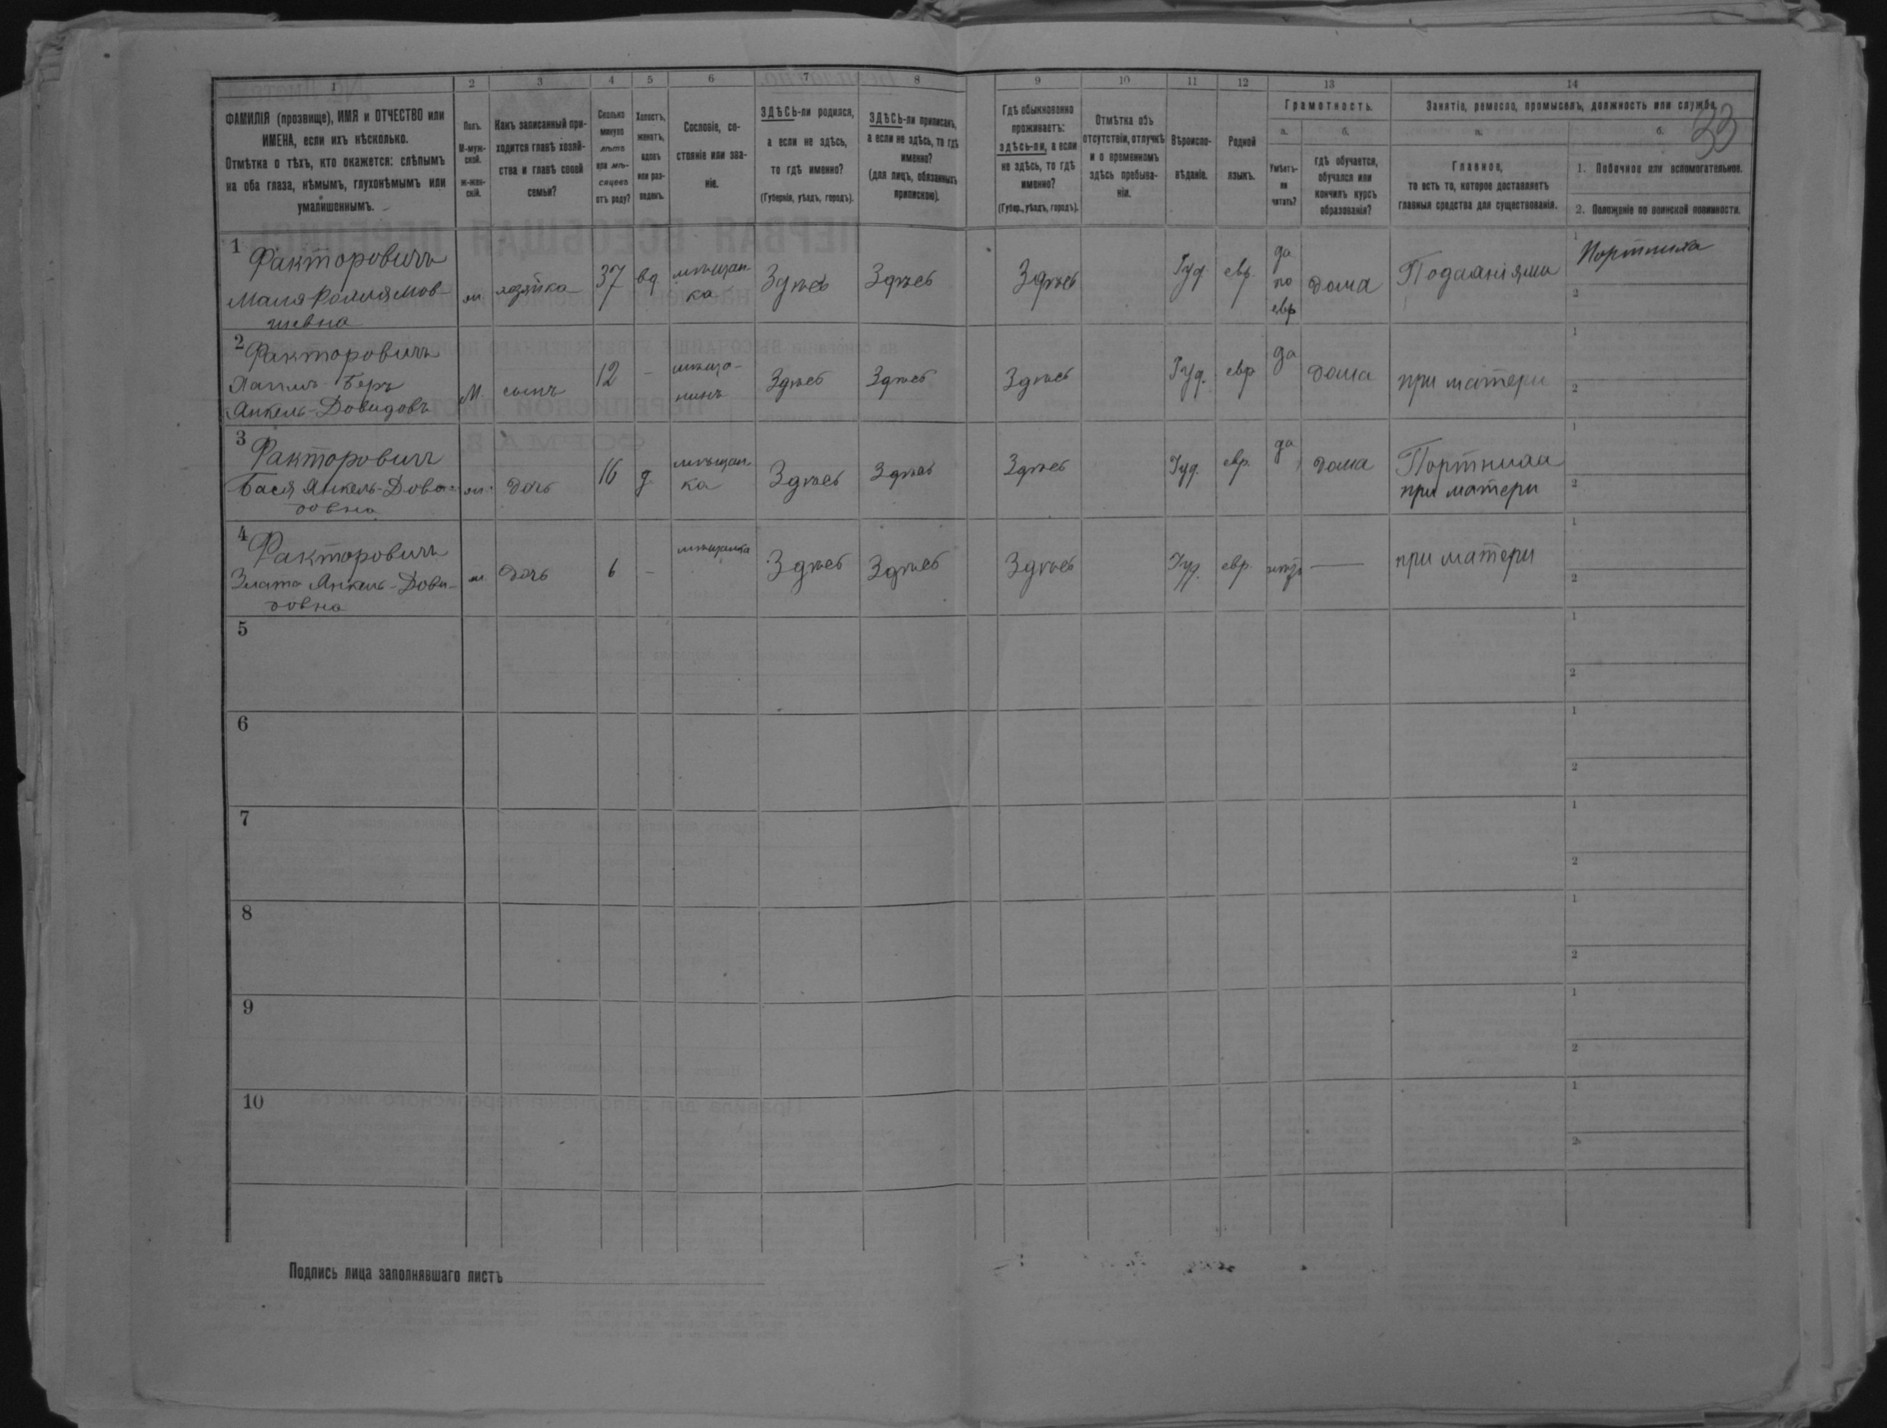 33
1 2 3 4 5 6 7 8 9 10 11 12 13 14
ФАМИЛІЯ (прозвище), ИМЯ и ОТЧЕСТВО или
ИМЕНА, если ихъ нѣсколько.
Отмѣтка о тѣхъ, кто окажется: слѣпымъ
на оба глаза, нѣмымъ, глухонѣмымъ или
умалишеннымъ.
Полъ.
М-муж-
ской.
Ж-жен-
скій.
Какъ записанный при-
ходится главѣ хозяй-
ства и главѣ своей
семьи?
Сколько
минуло
лѣтъ
или мѣ-
сяцевъ
отъ роду?
Холостъ,
женатъ,
вдовъ
или раз-
веденъ.
Сословіе, со-
стояніе или зва-
ніе.
ЗДѢСЬ-ли родился,
а если не здѣсь,
то гдѣ именно?
(Губернія, уѣздъ, городъ).
ЗДѢСЬ-ли приписанъ,
а если не здѣсь, то гдѣ
именно?
(для лицъ, обязанныхъ
припискою).
Гдѣ обыкновенно
проживаетъ:
здѣсь-ли, а если
не здѣсь, то гдѣ
именно?
(Губер., уѣздъ, городъ).
Отмѣтка объ
отсутствіи, отлучкѣ
и о временномъ
здѣсь пребыва-
ніи.
Вѣроиспо-
вѣданіе.
Родной
языкъ.
Грамотность.
а.
Умѣетъ-
ли
читать?
б.
гдѣ обучается,
обучался или
кончилъ курсъ
образованія?
Занятіе, ремесло, промыселъ, должность или служба.
а.
Главное,
то есть то, которое доставляетъ
главныя средства для существованія.
б.
1. Побочное или вспомогательное.
2. Положеніе по воинской повинности.
1
Факторовичъ
Маля
шевна
хозяйка
37
вд
мѣщан-
ка
Здѣсь
Здѣсь
Здѣсь
Іуд
евр.
да
по
евр
дома
Подаяніями
1 Портниха
2
2
Факторовичъ
Беръ
Янкель-Довидовъ
М
сынъ
12
-
мѣща-
нинъ
Здѣсь
Здѣсь
Здѣсь
Іуд.
евр
да
дома
при матери
1
2
3
Факторовичъ
Бася Янкель-Дови-
довна
дочь
16
д.
мѣщан-
ка
Здѣсь
Здѣсь
Здѣсь
Іуд.
евр.
да
дома
Портниха
при матери
1
2
4
Факторовичъ
Злата Янкель-Дови-
довна
дочь
6
-
мѣщанка
Здѣсь
Здѣсь
Здѣсь
Іуд.
евр.
нѣтъ
—
при матери
1
2
5
1
2
6
1
2
7
1
2
8
1
2
9
1
2
10
1
2
Подпись лица заполнявшаго листъ